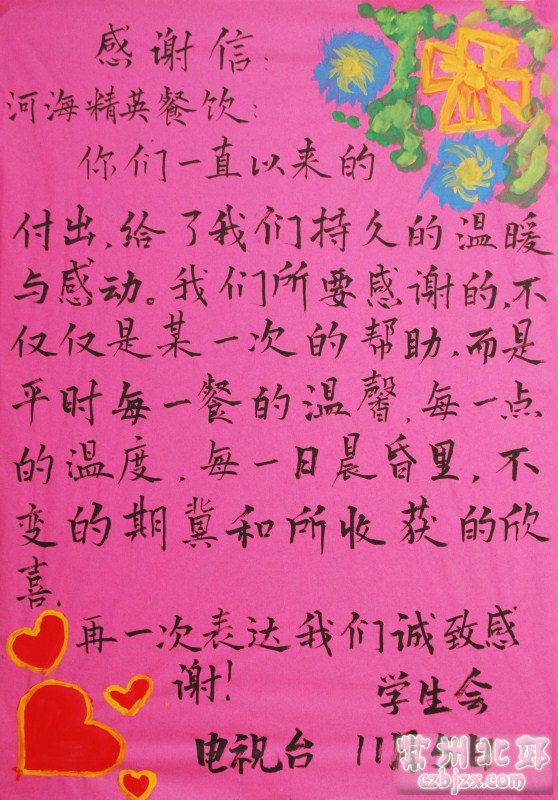 感谢信:
河海精英餐饮:
你们一直以来的
付出,给了我们持久的温暖
与感动。我们所要感谢的,不
仅仅是某一次的帮助,而是
平时每一餐的温馨,每一点
的温度,每一日晨昏里,不
变的期冀和所收获的欣
喜.
再一次表达我们诚致感
谢!
学生会
电视台 11月
常州北郊
czbjzx.com